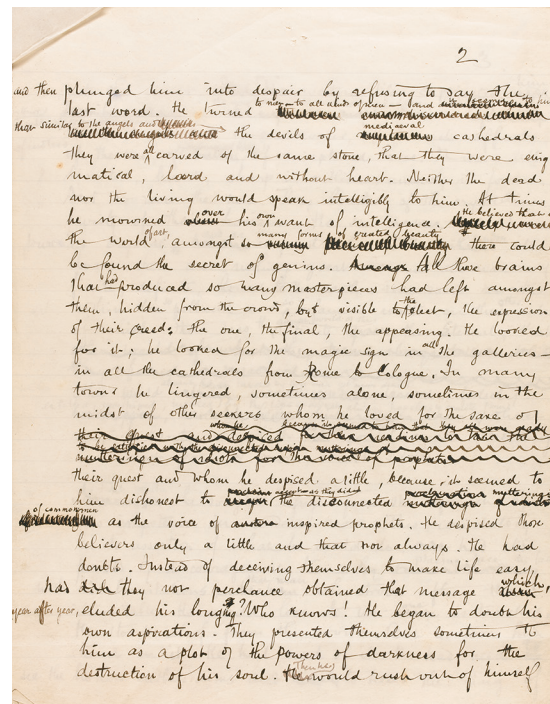 2
and then plunged him into despair by refusing to say the
last word. He turned to men – to all kinds of men – and
than similar to the angels and the devils of mediaeval cathedrals
they were all carved of the same stone, that they were enig
matical, hard and without heart. Neither the dead
nor the living would speak intelligibly to him. At times
he mourned over his own want of intelligence. He believed that in
the world of art, amongst so many forms of created beauty there could
be found the secret of genius. All those brains
that had produced so many masterpieces had left amongst
them, hidden from the crowd, but visible to the elect, the expression
of their creed: the one, the final, the appeasing. He looked
for it; he looked for the magic sign in all the galleries –
in all the cathedrals from Rome to Cologne. In many
towns he lingered, sometimes alone, sometimes in the
midst of other seekers whom he loved for the sake of
their quest and whom he despised a little, because it seemed to
him dishonest to the disconnected mutterings
of common men as the voice of inspired prophets. He despised those
believers only a little and that not always. He had
doubts. Instead of deceiving themselves to make life easy
had they not perchance obtained that message which,
year after year, eluded his longing? Who knows! He began to doubt his
own aspirations. They presented themselves sometimes to
him as a plot of the powers of darkness for the
destruction of his soul. Then he would rush out of himself